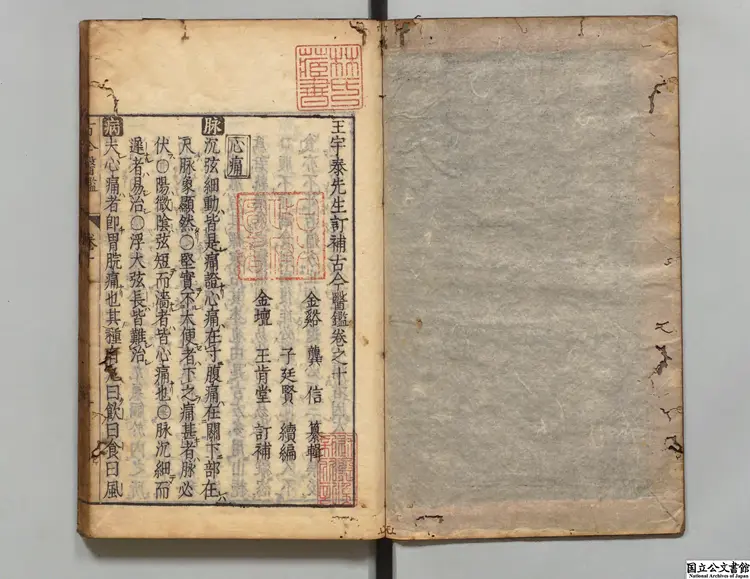 王宇泰先生訂補古今醫鑑卷之十
金谿 龔 信 纂輯
子廷賢 續編
金壇 王肯堂 訂補
心痛
脉 沉弦細動皆是痛證心痛在寸腹痛在關下部在
尺脉象顯然○堅實不大便者下之痛甚者脉必
伏○陽微陰弦短而濇者皆心痛也○脉沉細而
遲者易治○浮大弦長皆難治
病 夫心痛者即胃脘痛也其種有九曰飲曰食曰風
古今醫鑑 卷十
林氏藏書
国立公文書館
National Archives of Japan